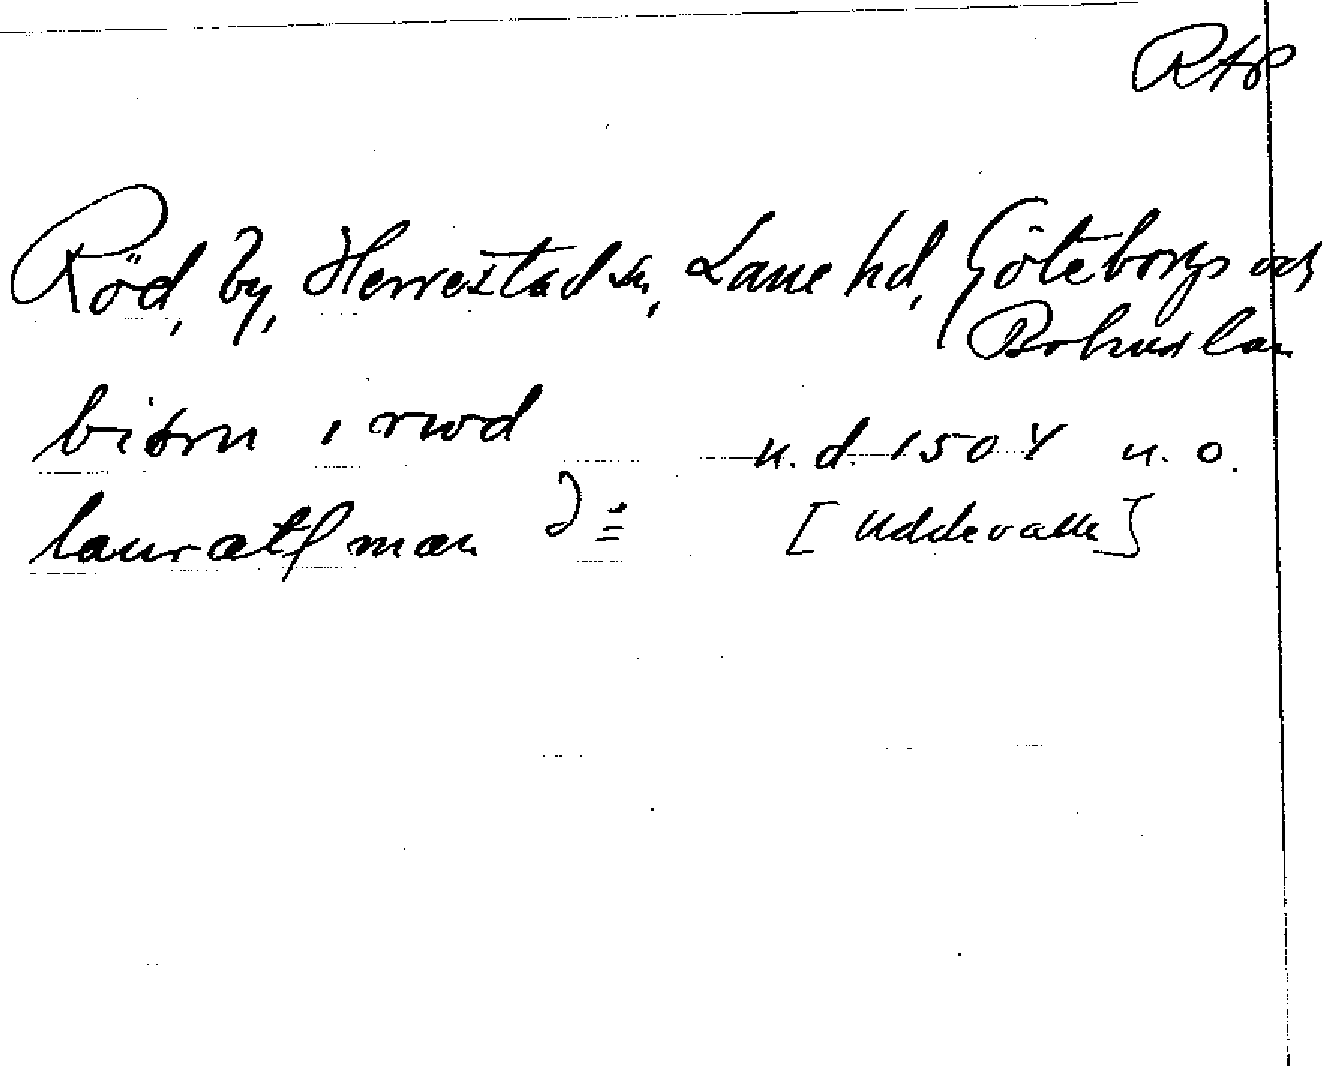 Röd, by, Herrestad sn, Lane hd, Göteborgs och
Bohus län
biörn i rwd n.d. 1504 n. o.
laurætſ man [Uddevalla]